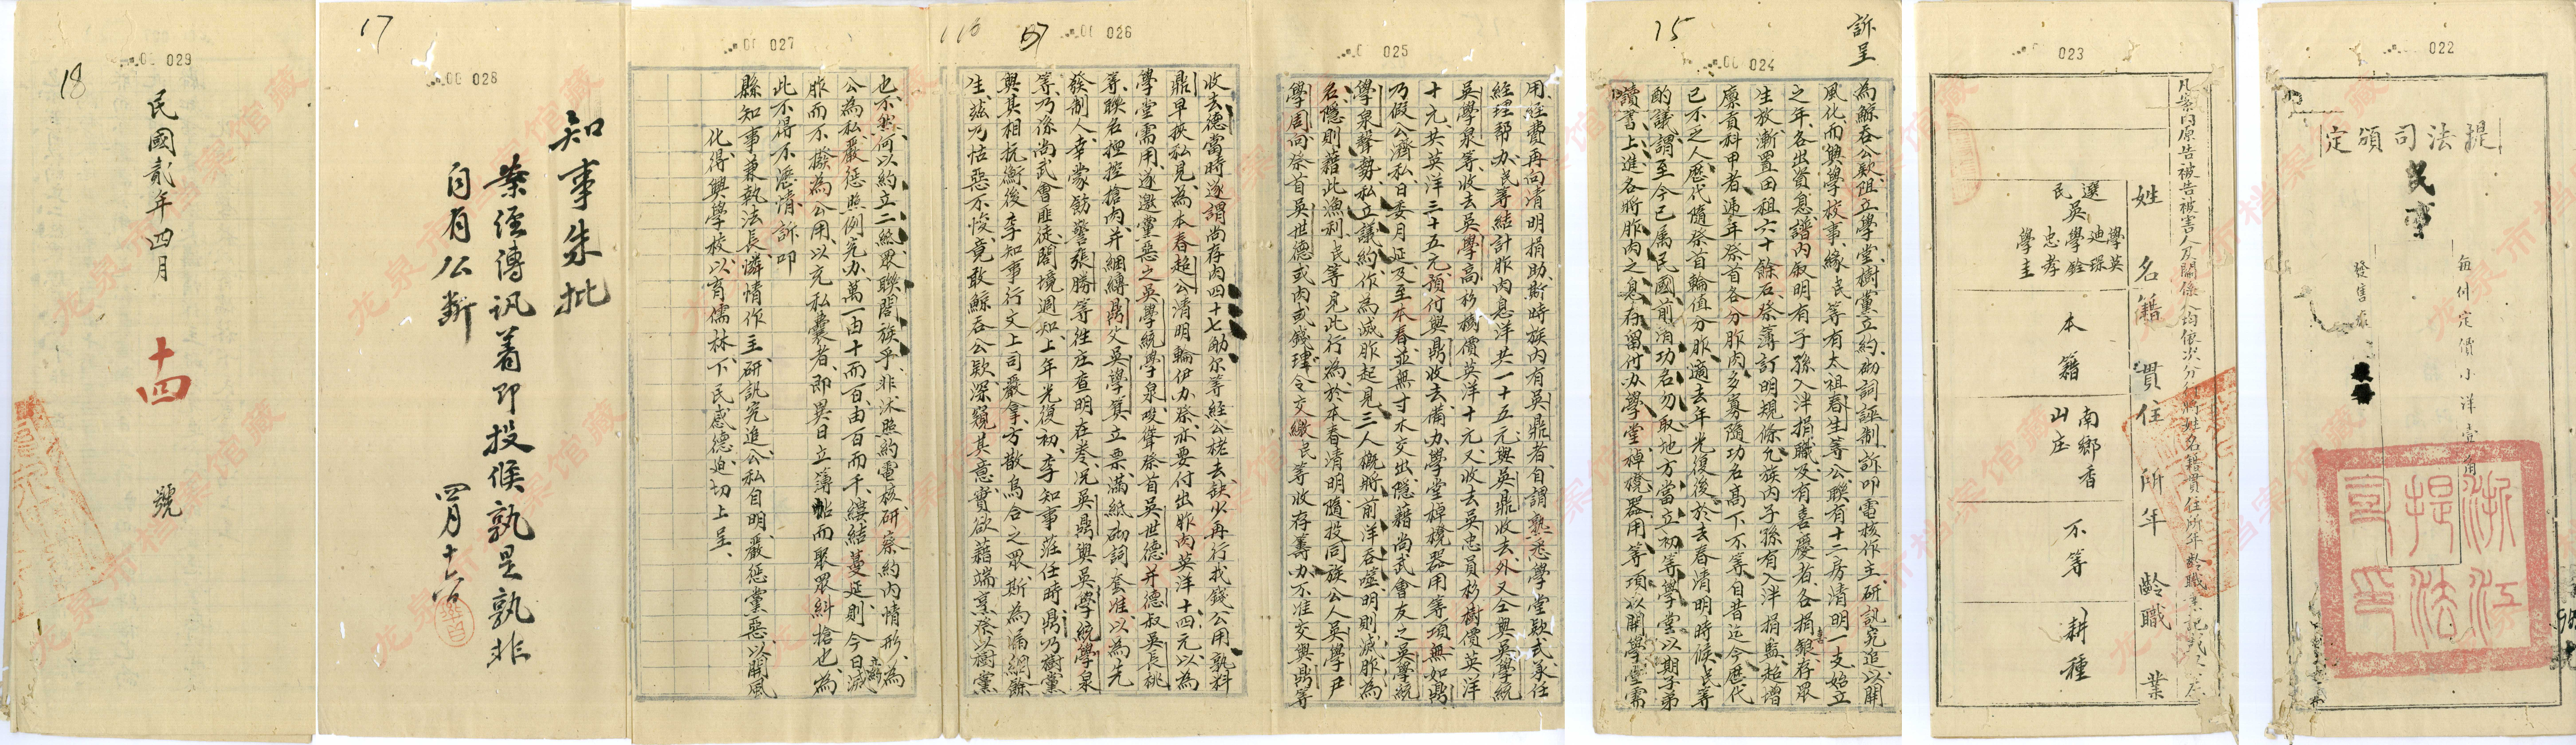 022
提法司頒定
民事
每付定價小洋壹角
發售處
浙江提法司印
023
凡案內原告被告被害人及關係人均依次分行將姓名籍貫住所年齡職業記載於左
姓名籍貫住所年齡職業
選民吳學英
迪琛
學銓
忠孝
學圭
本籍
南鄉香山庄
不等
耕種
15
024
訴呈
為鯨吞公欵阻立學堂樹黨立約砌詞誣制訴叩電核作主研訊究追以開
風化而興學校事緣民等有太祖春生等公聯有十二房清明一支始立
之年各出資息譜內敘明有子孫入泮捐職及有喜慶者各捐銀存眾
生放漸置田租六十餘石祭簿訂明規條允族內子孫有入泮捐監超增
廩貢科甲者遞年祭首各分胙肉多寡隨功名高下不等自昔迄今歷代
已示之人歷代隨祭首輪值分胙適去年光復後於去春清明時候民等
酌議謂至今已屬民國前清功名勿取地方當立初等學堂以期子弟
讀書上進各將胙肉之息存留付办學堂棹櫈器用等項以開學堂需
025
用經費再向清明捐助斯時族內有吳鼎者自謂熟悉學堂欵式承任
經理帮办民等結計胙肉息洋共一十五元與吳鼎收去外又仝與吳學統
吳學泉等收去吳學高杉樹價英洋十元又收去吳忠員杉樹價英洋
十元共英洋三十五元預付與鼎收去備办學堂棹櫈器用等項無如鼎
乃假公濟私日委月延及至本春並無寸木交出隱藉尚武會友之吳學統
學泉聲勢私立議約作為減胙起見三人概將前洋吞噬明則減胙為
名隱則藉此漁利民等見此行為於本春清明隨投同族公人吳學尹
學周向祭首吳世德或肉或錢聿令交繳民等收存籌办不准交與鼎等
116
026
收去德當時遂謂尚存肉四十七觔尔等經公栳去缺少再行找錢公用孰料
鼎早挾私見為本春超公清明輪伊办祭亦要付出胙肉英洋十四元以為
學堂需用遂邀黨惡之吳學統學泉唆聳祭首吳世德并德叔吳長桃
等聯名捏控搶肉并綑縛鼎父吳學箕立票滿紙砌詞套准以為先
發制人幸蒙飭警張勝等往庄查明在卷况吳鼎與吳學統學泉
等乃係尚武會匪徒閤境週知上年光復初李知事莅任時鼎乃樹黨
與其相抗衡後李知事行文上司嚴拿方散烏合之眾斯為漏網餘
生茲乃怙惡不悛竟敢鯨吞公欵深窺其意實欲藉端烹祭以樹黨
027
也不然何以約立二絲眾聯閤族乎非沐照約電核研察約內情形為
公為私嚴懲照例究办萬一由十而百由百而千縯結蔓延則今日減
胙而不撥為公用以充私囊者即異日立簿帖而聚眾糾搶也為
此不得不瀝情訴叩
縣知事兼執法長憐情作主研訊究追公私自明嚴懲黨惡以開風
化得興學校以育儒林下民感德迫切上呈
17
028
知事朱批
案經傳訊着即投候孰是孰非
自有公斷
四月十六
18
029
民國貳年四月 十四 號
龙泉市档案馆藏